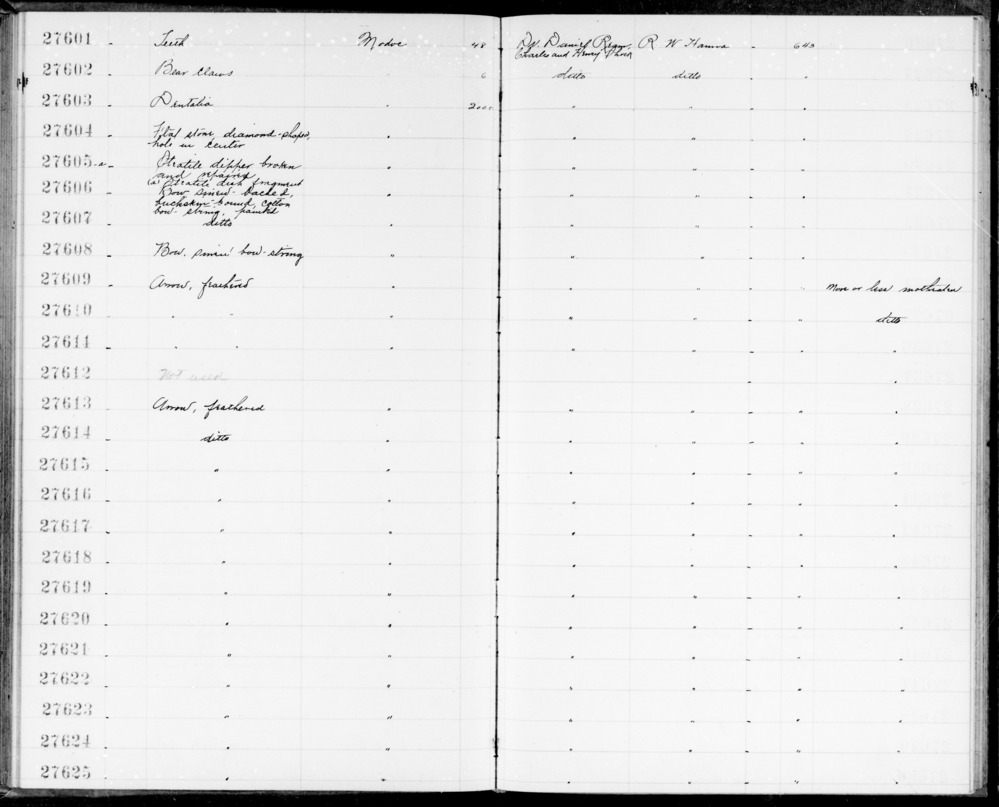 27601 - Teeth Modoc 48 Dr. Daniel R W Hanna - 643
Charles and Henry
27602 - Bear claws " 6 ditto ditto - "
27603 - Dentalia " 2000 " " - "
27604 - Flat stone, diamond-shape, " " " - "
hole in center
27605-a - Steatite dipper broken " " " - "
and repaired
(a) Steatite dish fragment
27606 - Bow sinew-backed, " " " - "
buckskin-bound, cotton
bow-string, painted
27607 - ditto " " " - "
27608 - Bow. sinew bow-string " " " - "
27609 - Arrow, feathered " " " - " More or less motheaten
27610 - " " " " " - " ditto
27611 - " " " " " - " "
27612 Not used - "
27613 - Arrow, feathered " " " - " "
27614 - ditto " " " - " "
27615 - " " " " - " "
27616 - " " " " - " "
27617 - " " " " - " "
27618 - " " " " - " "
27619 - " " " " - " "
27620 - " " " " - " "
27621 - " " " " - " "
27622 - " " " " - " "
27623 - " " " " - " "
27624 - " " " " - " "
27625 - " " " " - " "